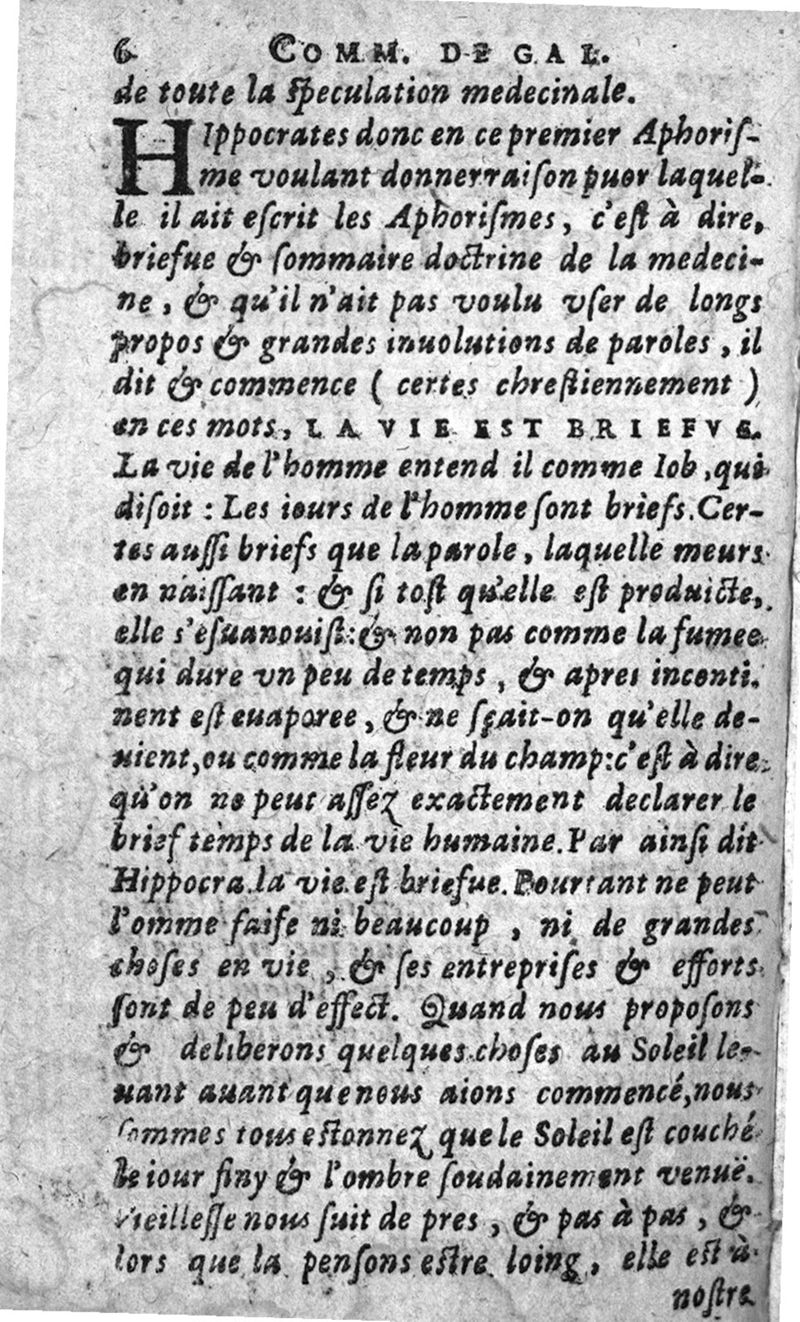 6 COMM. DE GAL.
de toute la ſpeculation medecinale.
HIppocrates donc en ce premier Aphoriſ-
me voulant donner raiſon puor laquel-
le il ait eſcrit les Aphoriſmes, c'eſt à dire,
briefue & ſommaire doctrine de la medeci-
ne, & qu'il n'ait pas voulu vſer de longs
propos & grandes inuolutions de paroles, il
dit & commence ( certes chreſtiennement )
en ces mots, LA VIE EST BRIEFVE.
La vie de l'homme entend il comme Iob, qui
diſoit : Les iours de l'homme ſont briefs. Cer-
tes auſſi briefs que la parole, laquelle meurs
en naiſſant : & ſi toſt qu'elle eſt produicte,
elle s'eſuanouiſt: & non pas comme la fumee
qui dure vn peu de temps, & apres inconti.
nent eſt euaporee, & ne ſçait-on qu'elle de-
uient, ou comme la fleur du champ: c'eſt à dire
qu'on ne peut aſſez exactement declarer le
brief temps de la vie humaine. Par ainſi dit
Hippocra. la vie eſt briefue. Pourtant ne peut
l'omme faiſe ni beaucoup, ni de grandes
choſes en vie, & ſes entrepriſes & efforts
ſont de peu d'effect. Quand nous propoſons
& deliberons quelques choſes au Soleil le-
uant auant que nous aions commencé, nous
ſommes tous eſtonnez que le Soleil eſt couché
le iour finy & l'ombre ſoudainement venuë.
Vieilleſſe nous ſuit de pres, & pas à pas, &
lors que la penſons eſtre loing, elle eſt à
noſtre